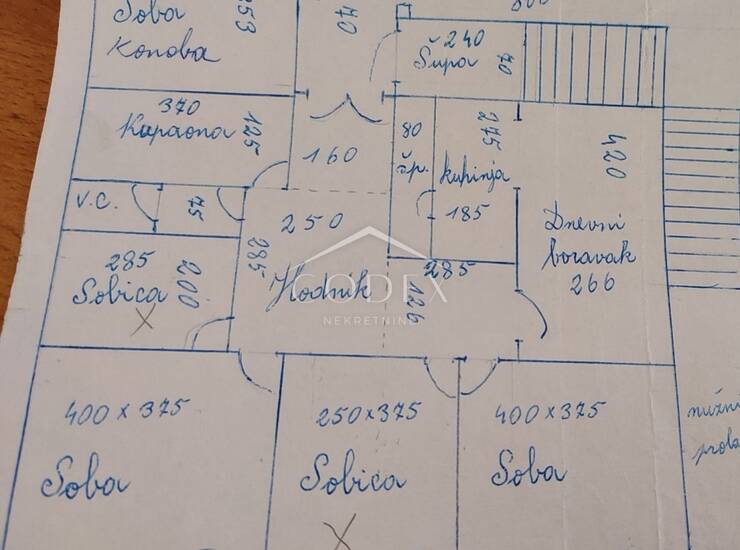 Soba
Konoba
253
70
240
Šupa
70
370
Kupaona
125
160
80
šp.
275
kuhinja
185
420
Dnevni
boravak
266
V.C.
75
250
285
Hodnik
285
126
285
Sobica
200
X
CODEX
NEKRETNINE
400 x 375
Soba
250x375
Sobica
X
400 x 375
Soba
nužni